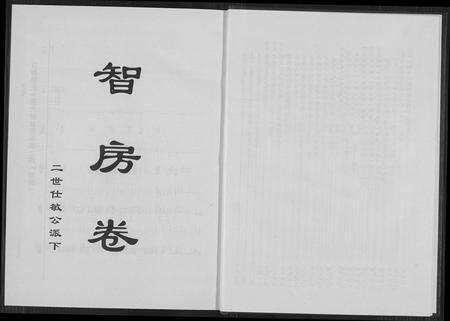 智房卷
二世仕敏公派下